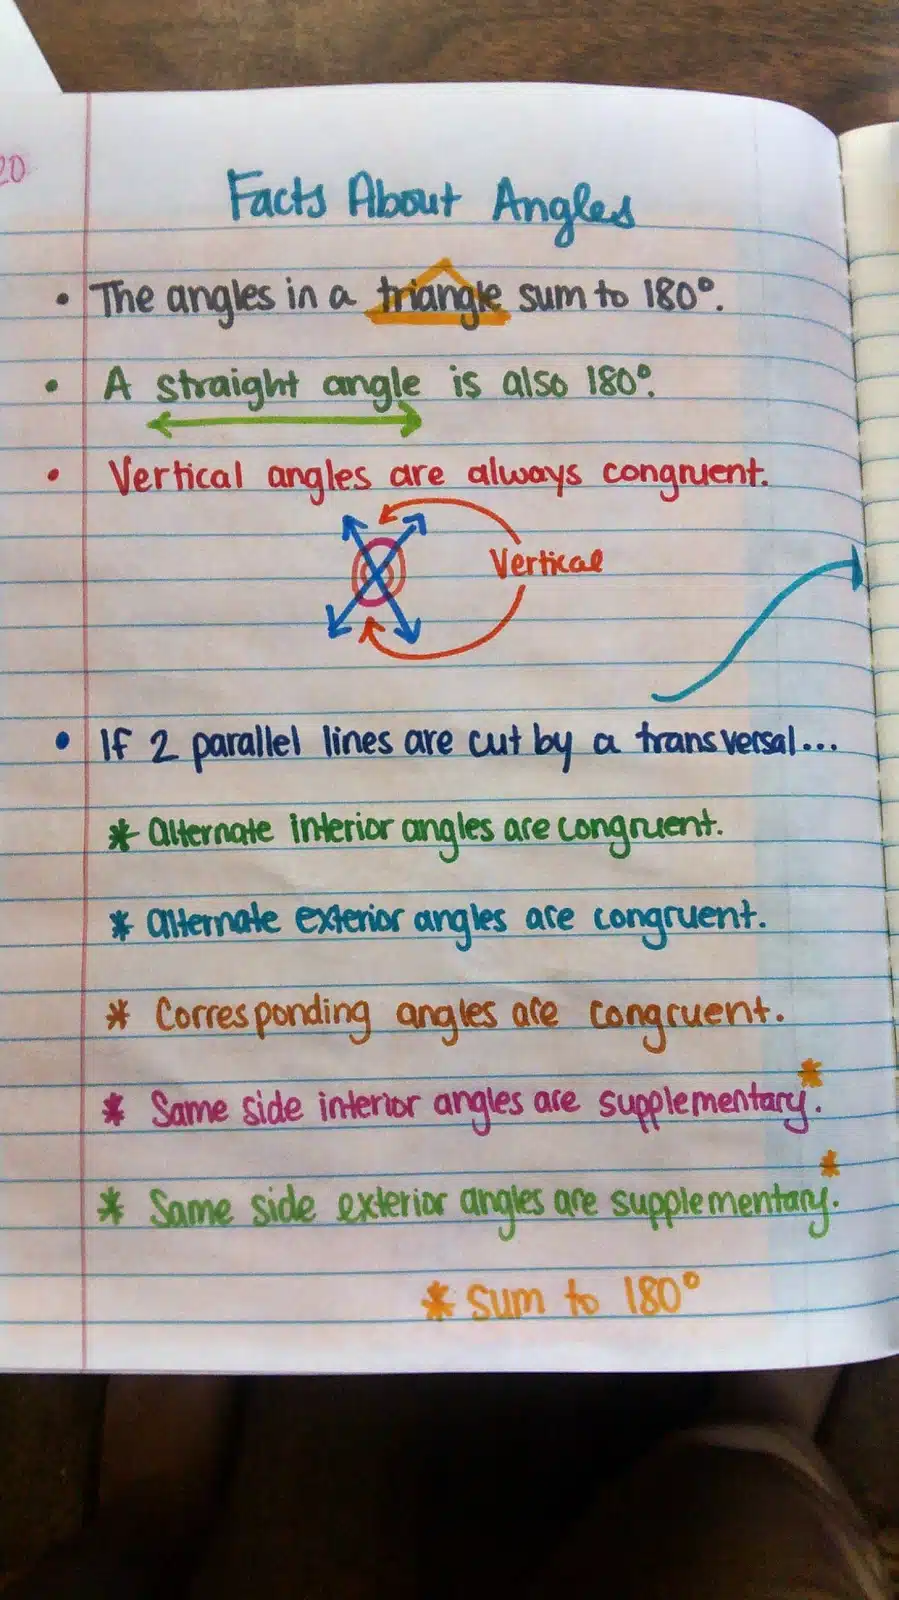 20
Facts About Angles
• The angles in a triangle sum to 180°.
• A straight angle is also 180°.
• Vertical angles are always congruent.
Vertical
• If 2 parallel lines are cut by a transversal...
* alternate interior angles are congruent.
* alternate exterior angles are congruent.
* Corresponding angles are congruent.
* Same side interior angles are supplementary.*
* Same side exterior angles are supplementary.*
* sum to 180°